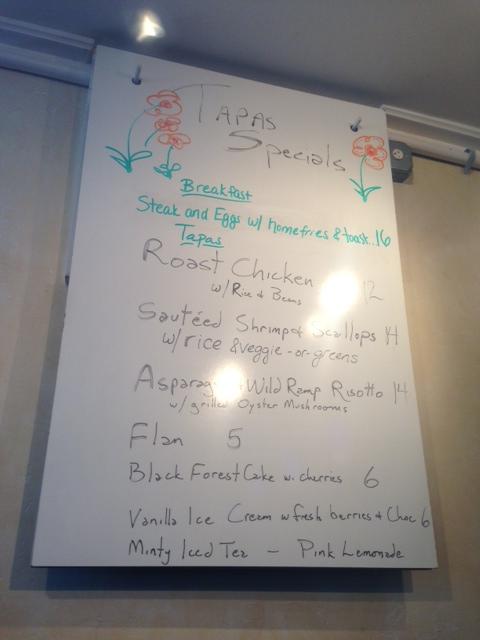 Tapas
Specials
Breakfast
Steak and Eggs w/ homefries & toast..16
Tapas
Roast Chicken 12
w/ Rice & Beans
Sautéed Shrimp & Scallops 14
w/ rice & veggie -or- greens
Wild Ramp Risotto 14
w/ grilled Oyster Mushrooms
Flan 5
Black Forest Cake w. cherries 6
Vanilla Ice Cream w fresh berries & Choc 6
Minty Iced Tea - Pink Lemonade